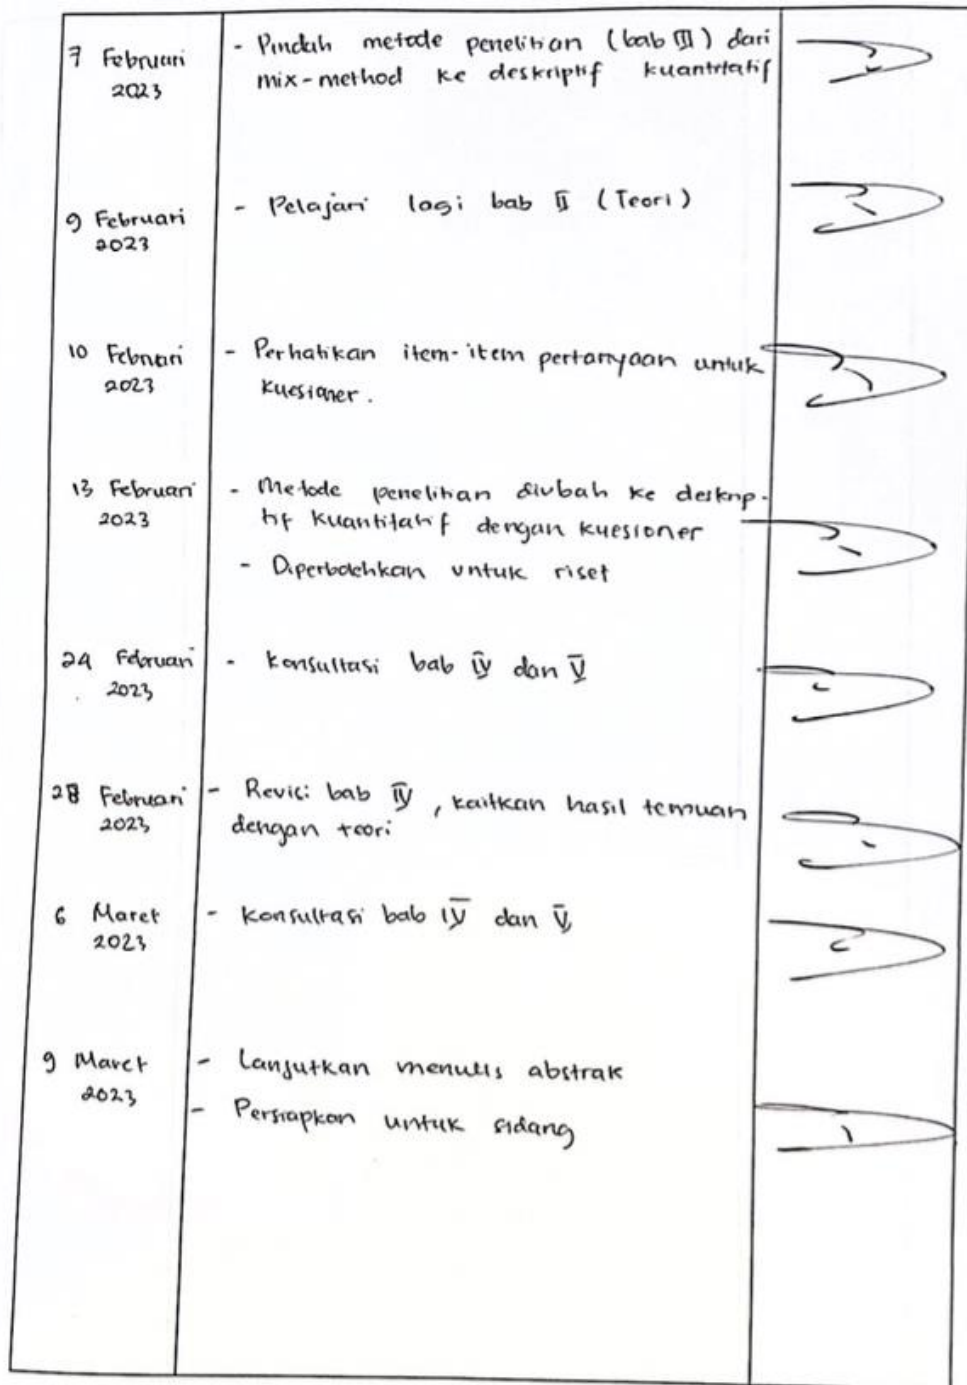 7 Februari
2023
- Pindah metode penelitian (bab III) dari
mix-method ke deskriptif kuantitatif
9 Februari
2023
- Pelajari lagi bab II (Teori)
10 Februari
2023
- Perhatikan item-item pertanyaan untuk
kuesioner.
13 Februari
2023
- Metode penelitian diubah ke deskrip-
tif kuantitatif dengan kuesioner
- Diperbolehkan untuk riset
24 Februari
2023
- Konsultasi bab IV dan V
28 Februari
2023
- Revisi bab IV, kaitkan hasil temuan
dengan teori
6 Maret
2023
- Konsultasi bab IV dan V
9 Maret
2023
- Lanjutkan menulis abstrak
- Persiapkan untuk sidang